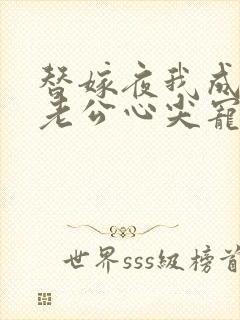 替嫁夜我成
老公心尖宠
世界sss级榜首